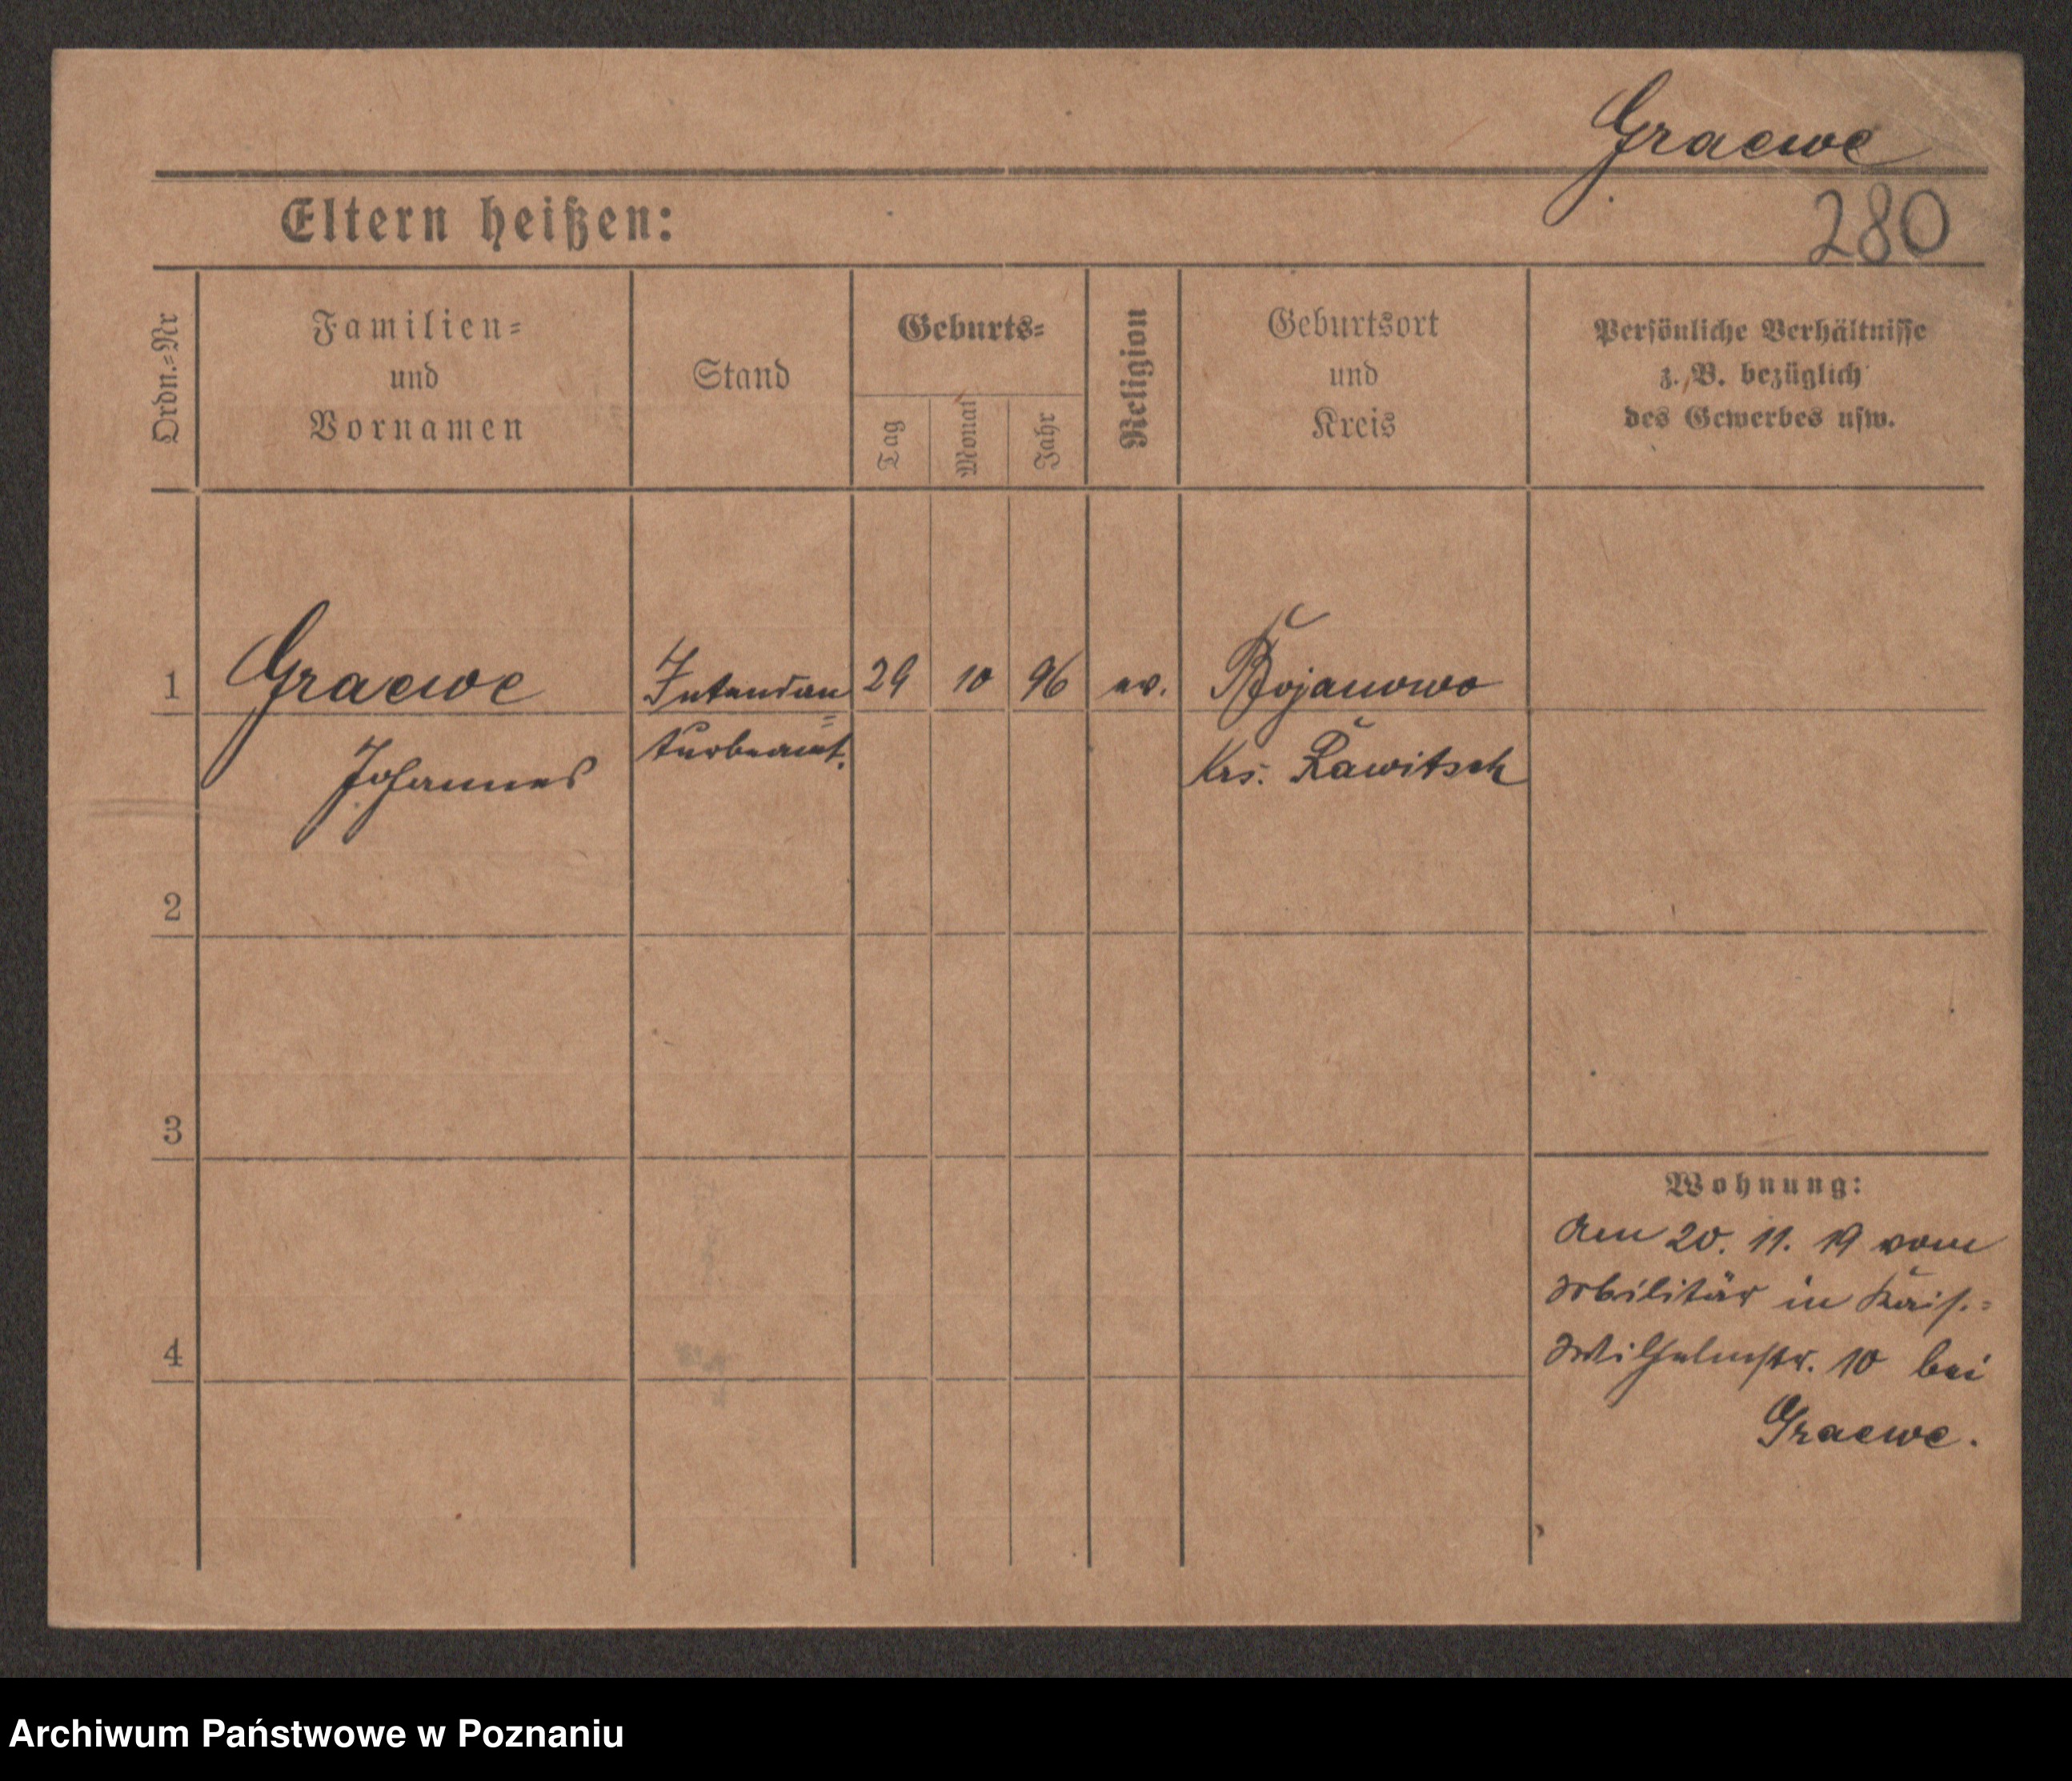 Graewe
280
Eltern heißen:
Ordn.=Nr
Familien=
und
Vornamen
Stand
Geburts=
Tag
Monat
Jahr
Religion
Geburtsort
und
Kreis
Persönliche Verhältnisse
z. B. bezüglich
des Gewerbes usw.
1
Graewe
Johannes
Intendan=
turbeamt.
29
10
96
ev.
Bojanowo
Krs. Rawitsch
2
3
4
Wohnung:
Am 20. 11. 19 vom
Militär in Kais.=
Wilhelmstr. 10 bei
Graewe.
Archiwum Państwowe w Poznaniu